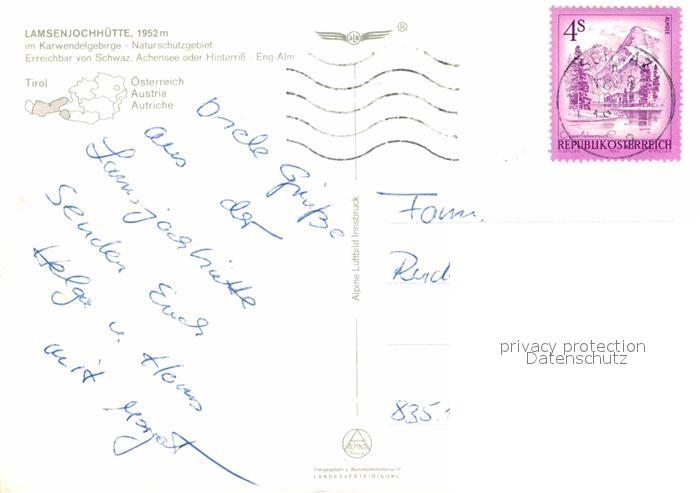 LAMSENJOCHHÜTTE, 1952 m
im Karwendelgebirge - Naturschutzgebiet
Erreichbar von Schwaz, Achensee oder Hinterriß - Eng-Alm
Tirol
Österreich
Austria
Autriche
®
4S
ALMSEE
REPUBLIK ÖSTERREICH
Viele Grüße
aus der
Lamsjochhütte
senden Euch
Helga u. Hans
mit Margot
Alpine Luftbild Innsbruck
Fam.
Rud
835
privacy protection
Datenschutz
ALPINE
Freigegeben v. Bundesministerium f.
LANDESVERTEIDIGUNG